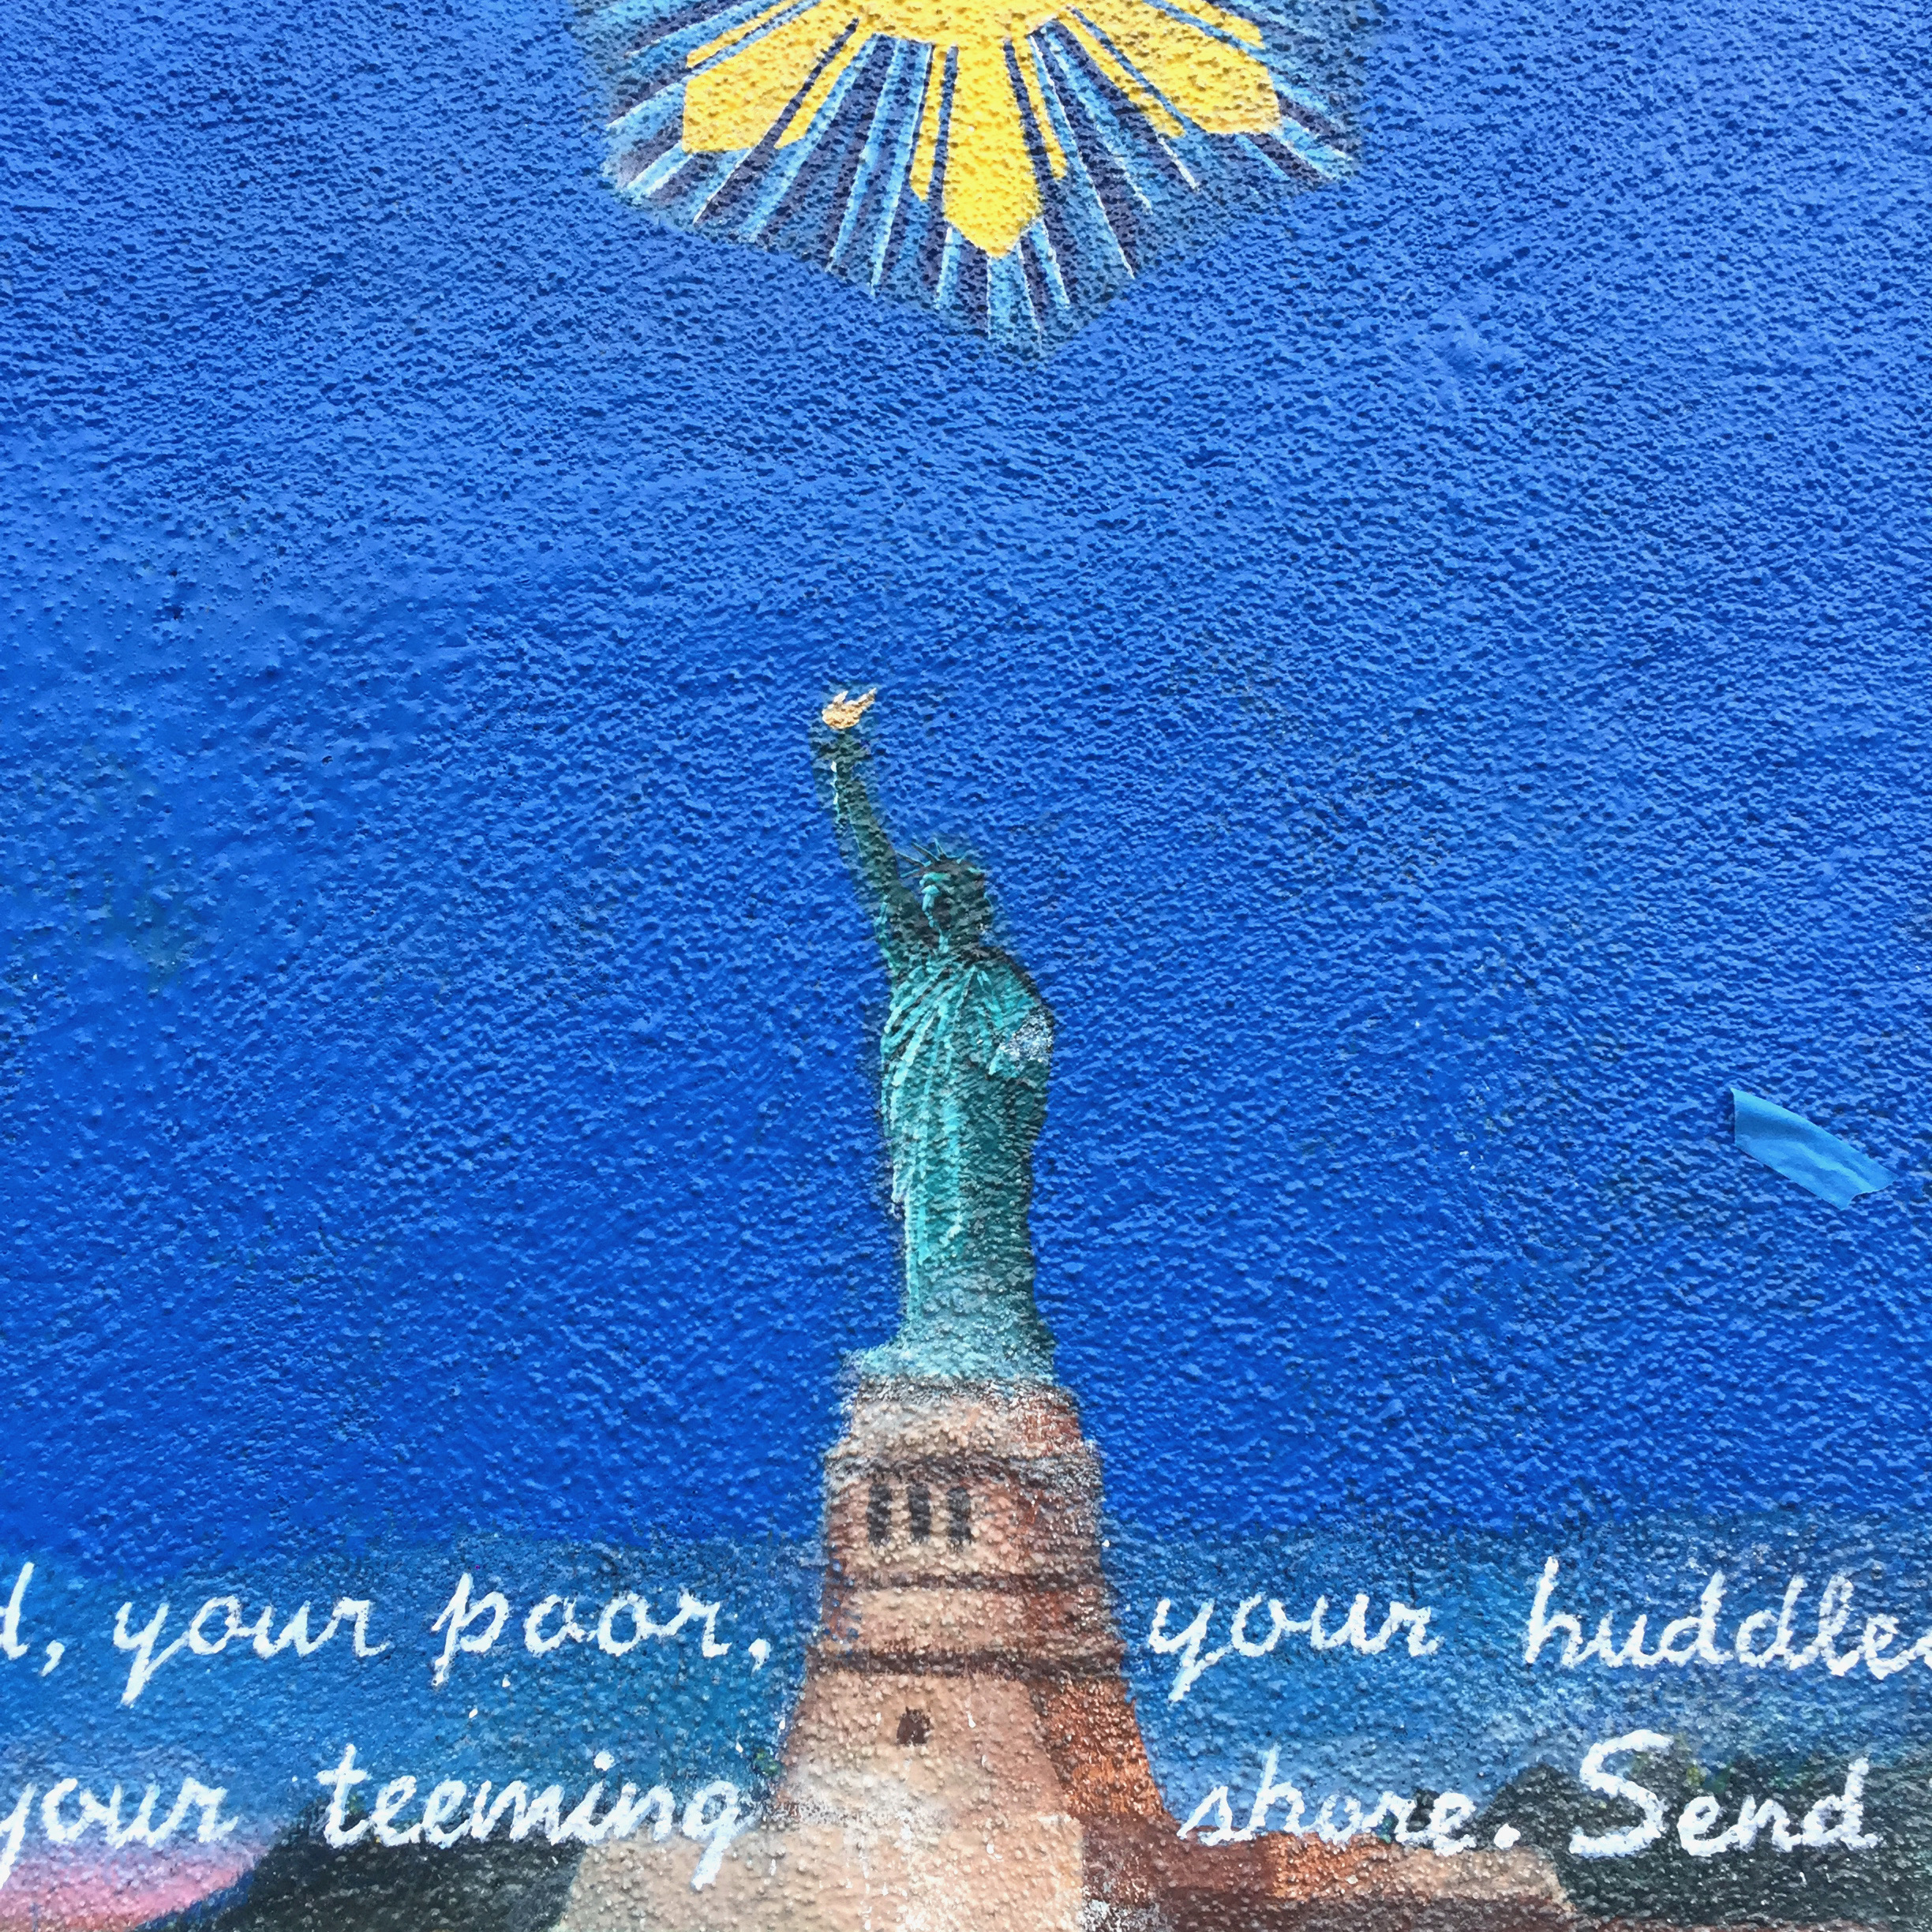 d, your poor, your huddled
your teeming shore. Send